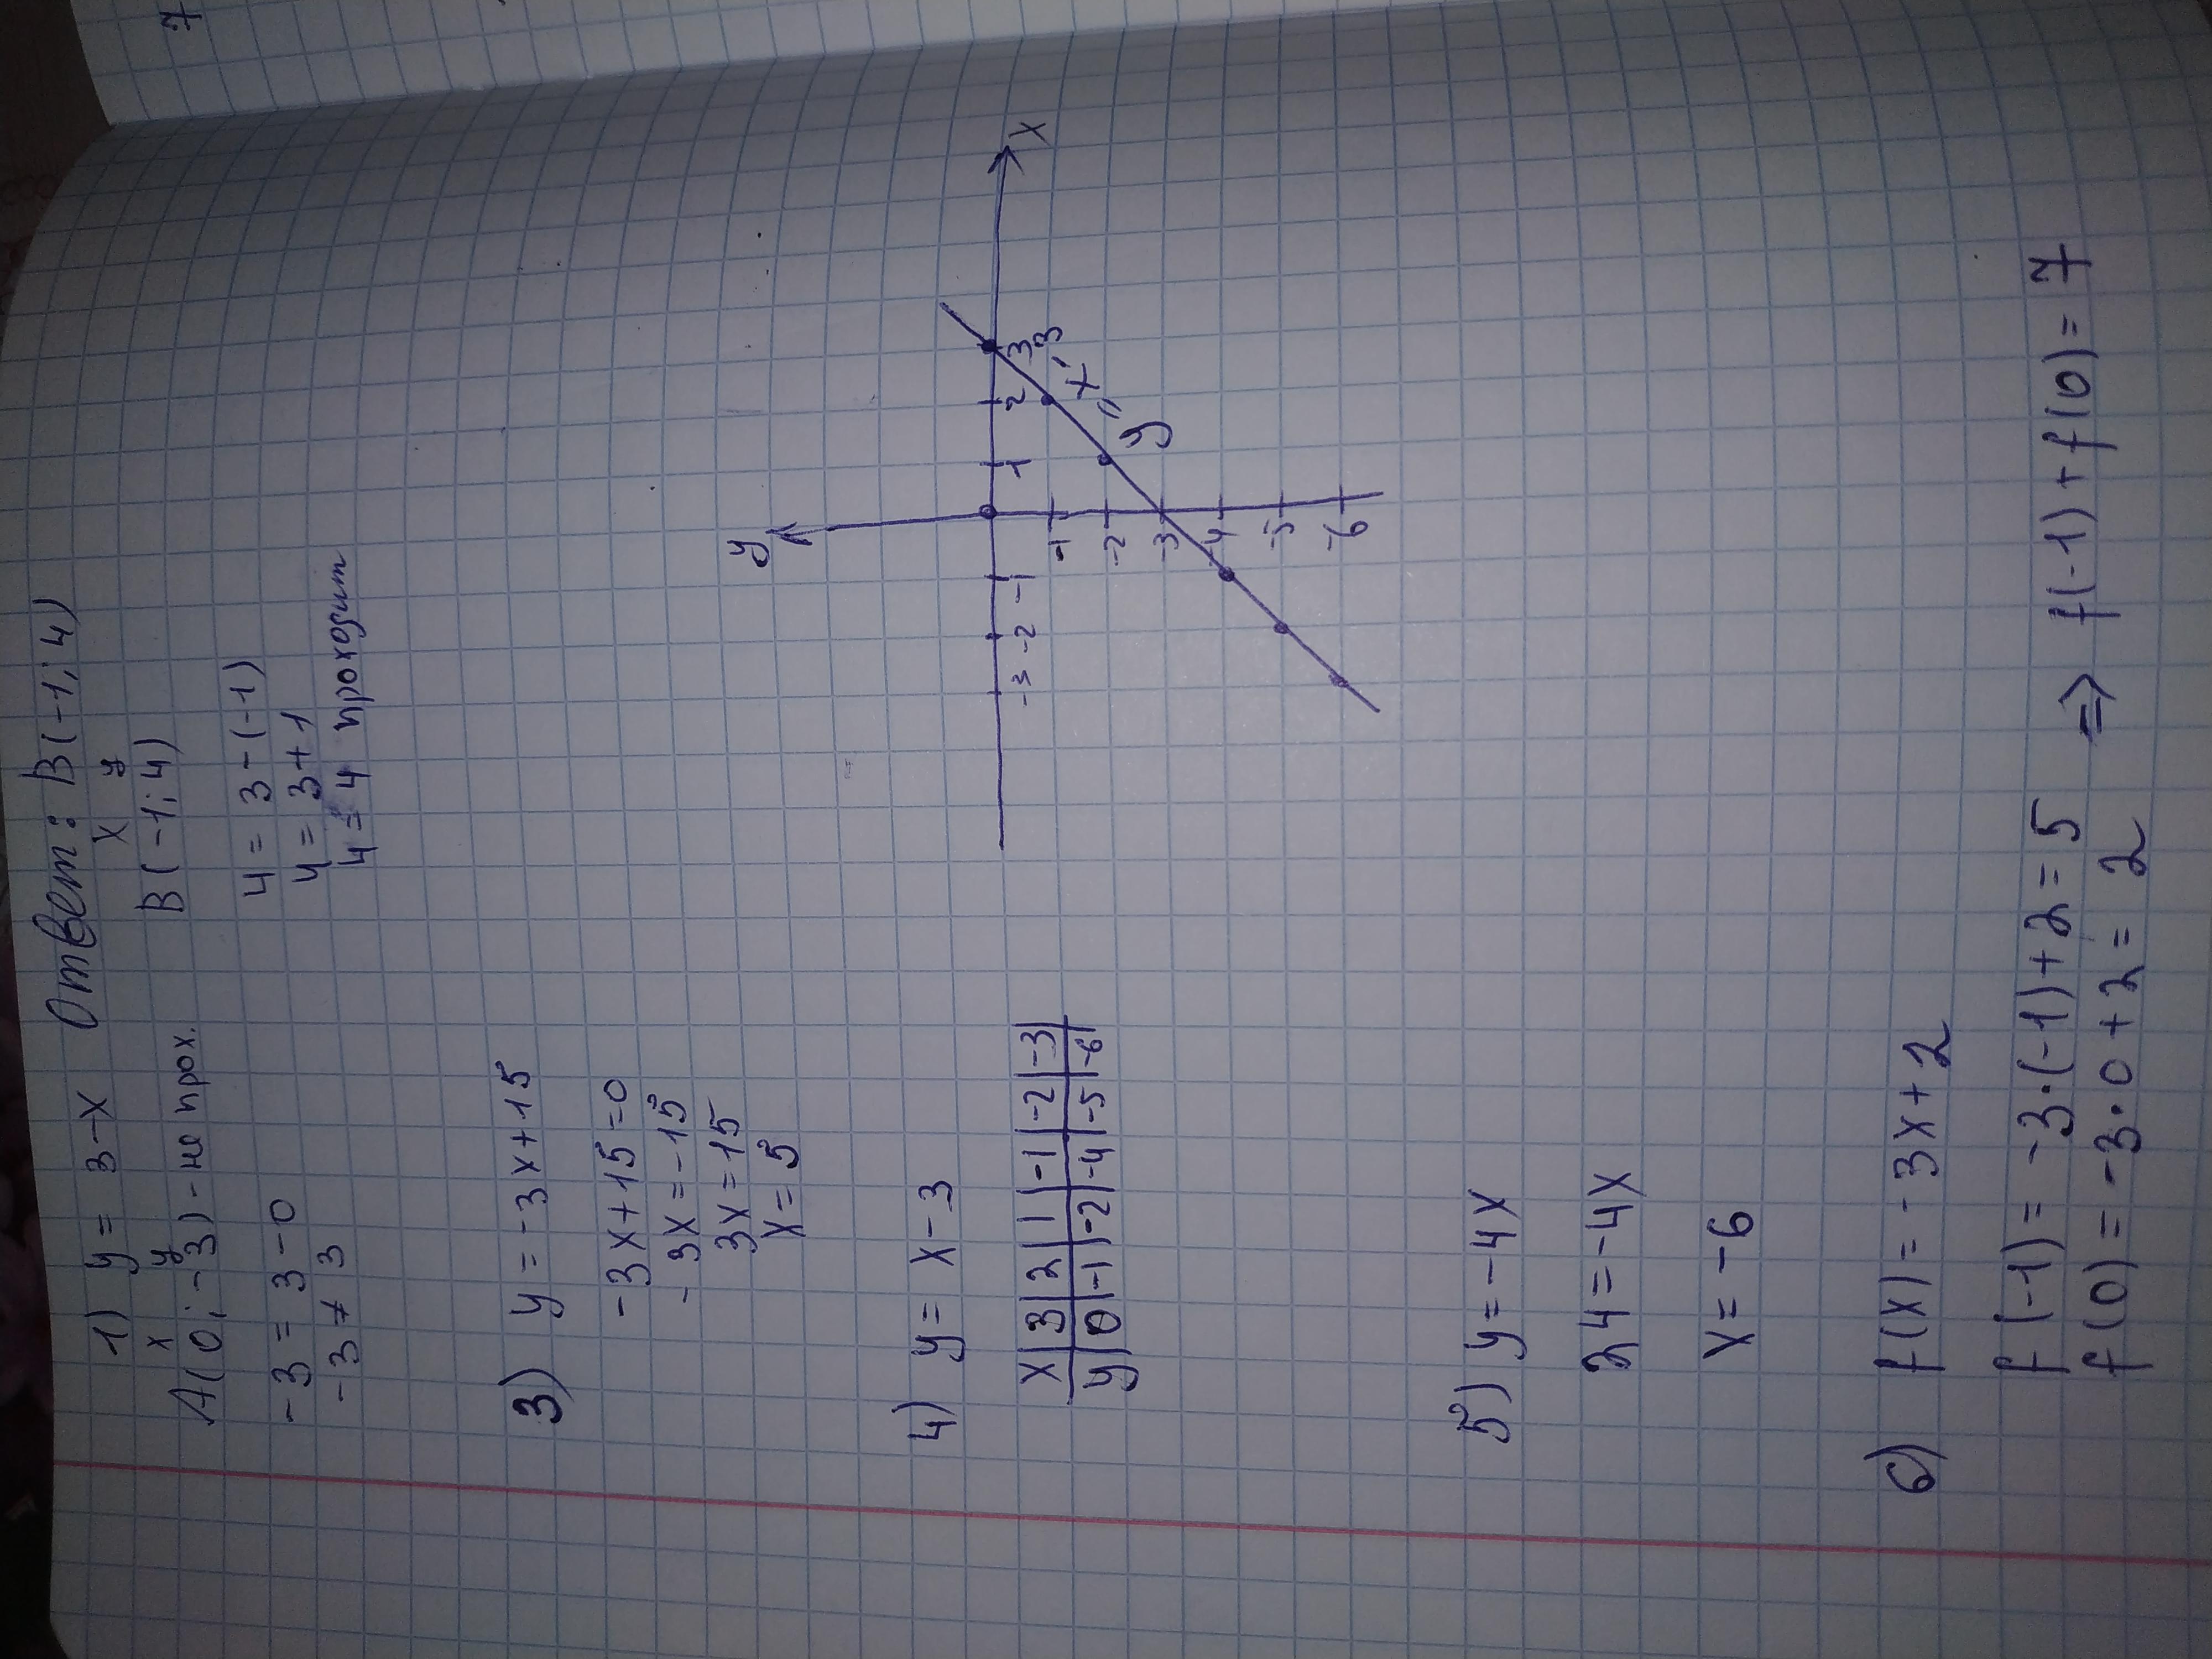 7
1) y = 3-x Ответ: B(-1; 4)
x y
A(0; -3) - не прох.
-3 = 3-0
-3 ≠ 3
x y
B(-1; 4)
4 = 3-(-1)
4 = 3+1
4 = 4 проходит
3) y = -3x+15
-3x+15=0
-3x=-15
3x=15
x=5
4) y = x-3
x | 3 | 2 | 1 | -1 | -2 | -3
y | 0 | -1 | -2 | -4 | -5 | -6
y
x
-3 -2 -1 1 2 3
-1
-2
-3
-4
-5
-6
y=x-3
5) y=-4x
24=-4x
x=-6
6) f(x) = -3x+2
f(-1) = -3·(-1)+2=5 ⇒ f(-1)+f(0)=7
f(0) = -3·0+2= 2